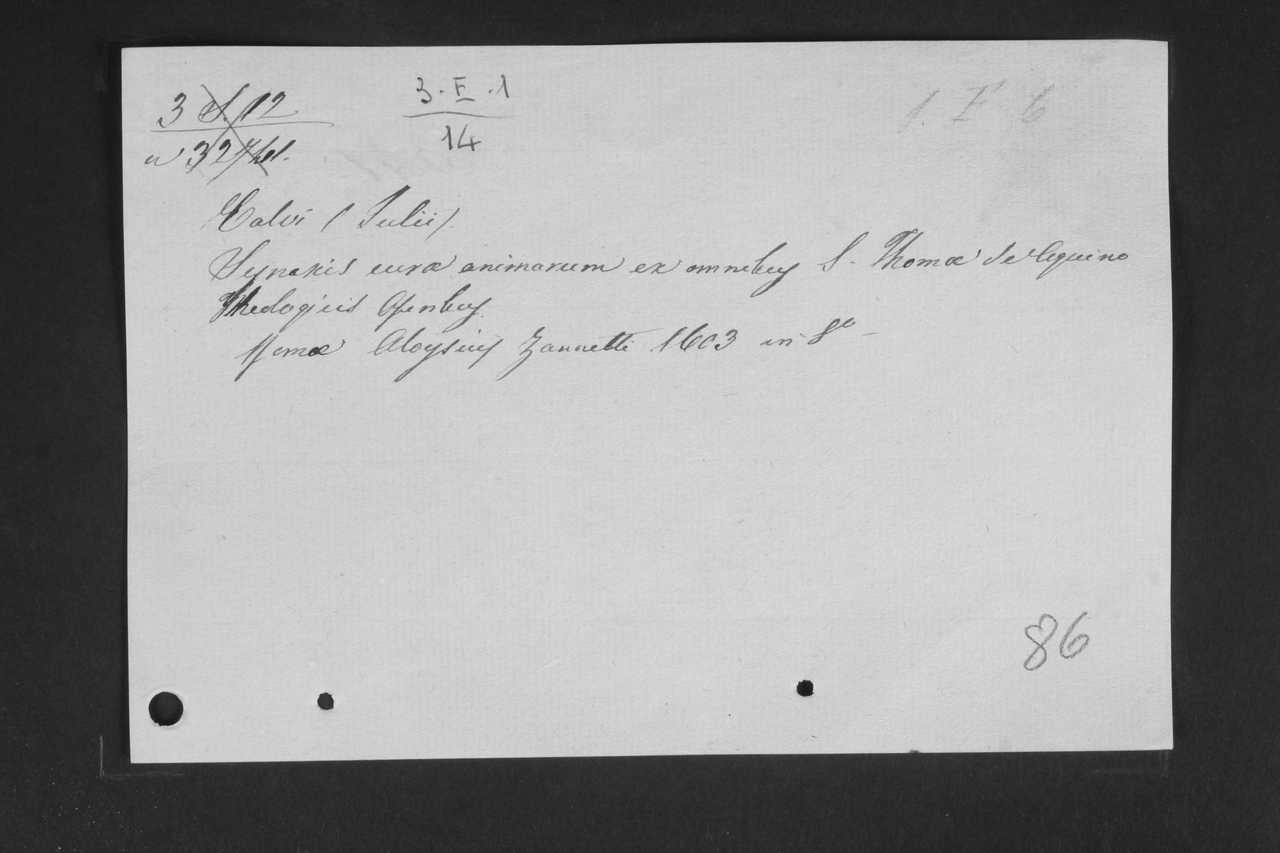 3 S. 12
3. E. 1
14
1. F 6
Calvi (Julii).
Synaxis curæ animarum ex omnibus S. Thomæ de Aquino
Theologicis Operibus
Romæ Aloysius Zannetti 1603 in 8º
86